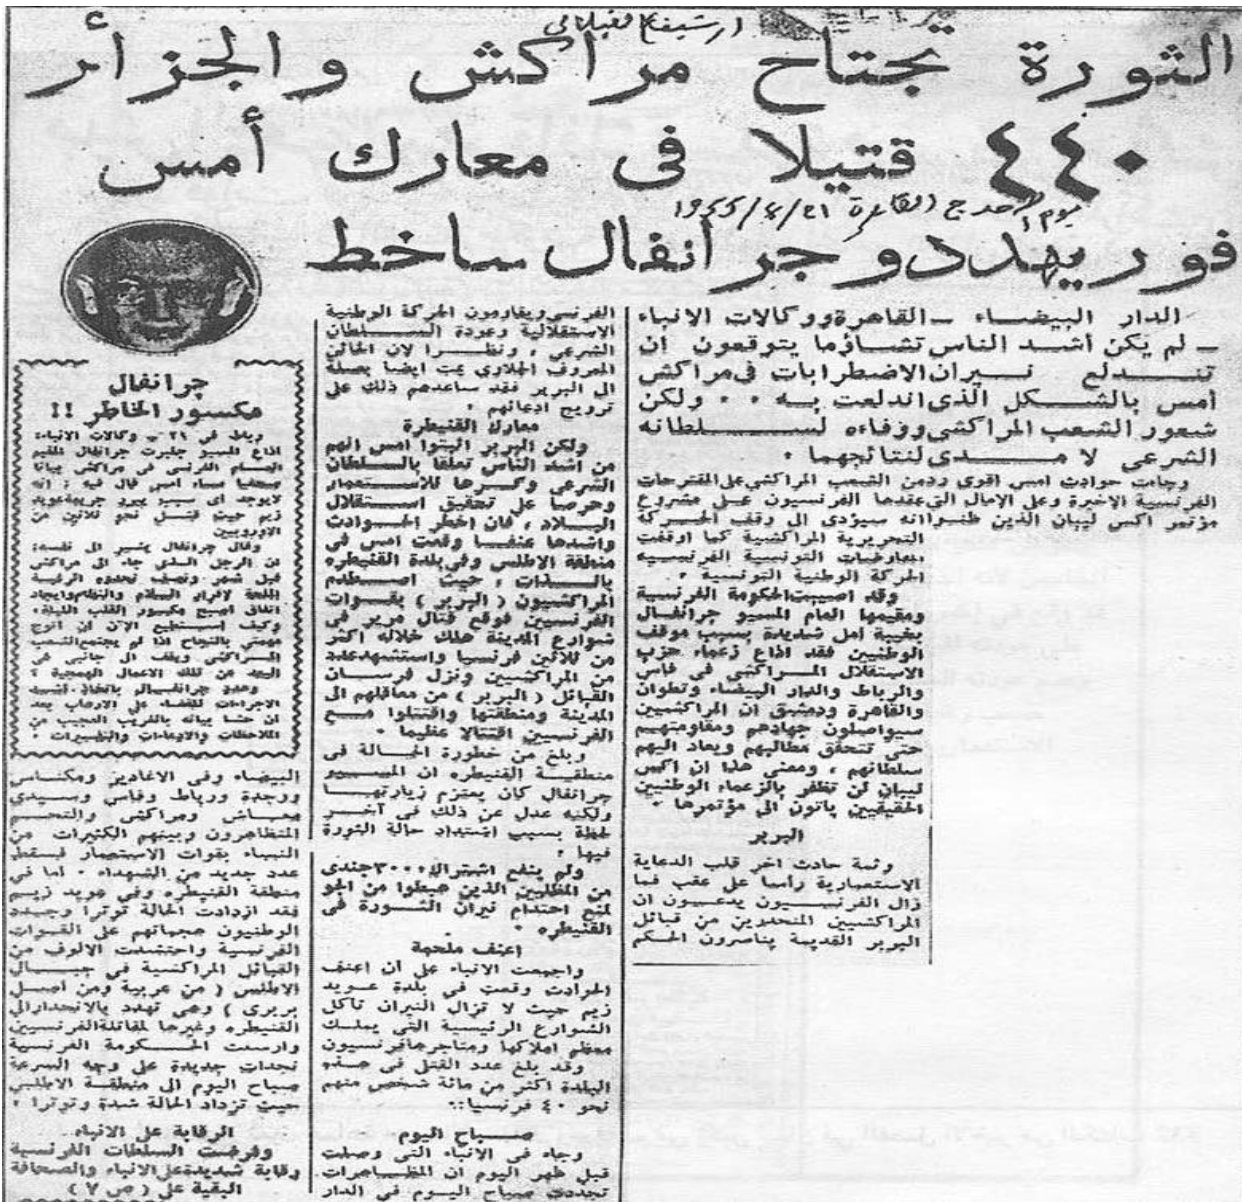 ارشيف الفيلالي
الثورة تجتاح مراكش والجزائر
٤٤٠ قتيلا فى معارك أمس
يوم الاحد ج القاهرة ١٩٥٥/٨/٢١
فور يهدد وجرانفال ساخط
الدار البيضاء – القاهرة ووكالات الانباء
– لم يكن أشد الناس تشاؤما يتوقعون ان
تندلع نيران الاضطرابات فى مراكش
أمس بالشكل الذى اندلعت به ٠٠ ولكن
شعور الشعب المراكشى ووفاءه لسلطانه
الشرعى لا مدى لنتائجهما ٠
وجاءت حوادث امس اقوى رد من الشعب المراكشي على المقترحات
الفرنسية الاخيرة وعلى الامال التى عقدها الفرنسيون على مشروع
مؤتمر اكس ليبان الذين ظنوا انه سيؤدى الى وقف الحركة
التحريرية المراكشية كما اوقفت
المفاوضات التونسية الفرنسيه
الحركة الوطنية التونسيه ٠
وقد اصيبت الحكومة الفرنسية
ومقيمها العام المسيو جرانفال
بخيبة امل شديدة بسبب موقف
الوطنيين فقد اذاع زعماء حزب
الاستقلال المراكشى فى فاس
والرباط والدار البيضاء وتطوان
والقاهرة ودمشق ان المراكشيين
سيواصلون جهادهم ومقاومتهم
حتى تتحقق مطالبهم ويعاد اليهم
سلطانهم ، ومعنى هذا ان اكس
ليبان لن تظفر بالزعماء الوطنيين
الحقيقيين ياتون الى مؤتمرها ٠
البربر
وثمة حادث اخر قلب الدعاية
الاستعمارية رأسا على عقب فما
زال الفرنسيون يدعون ان
المراكشيين المنحدرين من قبائل
البربر القديمة يناصرون الحكم
الفرنسى ويقاومون الحركة الوطنية
الاستقلالية وعودة السلطان
الشرعى ، ونظرا لان الخائن
المعروف الجلاوى يمت ايضا بصلة
الى البربر فقد ساعدهم ذلك على
ترويج ادعائهم ٠
معارك القنيطرة
ولكن البربر اثبتوا امس انهم
من اشد الناس تعلقا بالسلطان
الشرعى وكرها للاستعمار
وحرصا على تحقيق استقلال
البلاد ، فان اخطر الحوادث
واشدها عنفا وقعت امس فى
منطقة الاطلس وفى بلدة القنيطره
بالذات ، حيث اصطدم
المراكشيون ( البربر ) بقوات
الفرنسيين فوقع قتال مرير فى
شوارع المدينة هلك خلاله اكثر
من ثلاثين فرنسيا واستشهد عدد
من المراكشيين ونزل فرسان
القبائل ( البربر ) من معاقلهم الى
المدينة ومنطقتها واقتتلوا مع
الفرنسيين اقتتالا عظيما ٠
وبلغ من خطورة الحالة فى
منطقة القنيطره ان المسيو
جرانفال كان يعتزم زيارتها
ولكنه عدل عن ذلك فى آخر
لحظة بسبب اشتداد حالة الثورة
فيها ٠
ولم ينفع اشتراك ٣٠٠٠ جندى
من المظليين الذين هبطوا من الجو
لمنع احتدام نيران الثورة فى
القنيطره ٠
اعنف ملحمة
واجمعت الانباء على أن اعنف
الحوادث وقعت فى بلدة عويد
زيم حيث لا تزال النيران تأكل
الشوارع الرئيسية التى يملك
معظم املاكها ومتاجرها فرنسيون
وقد بلغ عدد القتلى فى هذه
البلدة اكثر من مائة شخص منهم
نحو ٤٠ فرنسيا ٠٠
صباح اليوم
وجاء فى الانباء التى وصلت
قبل ظهر اليوم ان المظاهرات
تجددت صباح اليوم فى الدار
جرانفال
مكسور الخاطر !!
رباط فى ٢١ – وكالات الانباء:
اذاع المسيو جلبرت جرانفال المقيم
العام الفرنسى فى مراكش بيانا
صحفيا مساء امس قال فيه : انه
لا يوجد اى سبب يبرر جريمة عويد
زيم حيث قتل نحو ثلاثين من
الاوروبيين
وقال جرانفال يشير الى نفسه:
ان الرجل الذى جاء الى مراكش
قبل شهر ونصف تحدوه الرغبة
الملحة لاقرار السلام والنظام وايجاد
اتفاق اصبح مكسور القلب الليلة٠
وكيف استطيع الآن ان اتوج
مهمتى بالنجاح اذا لم يجتمع الشعب
المراكشى ويقف الى جانبى فى
البعد عن تلك الاعمال الهمجية ؟
وهدد جرانفال باتخاذ اشد
الاجراءات للقضاء على الارهاب بعد
ان حشا بيانه بالغريب العجيب من
الملاحظات والادعاءات والتفسيرات ٠
البيضاء وفى الاغادير ومكناس
ووجدة ورباط وفاس وسيدى
معاش ومراكش والتحم
المتظاهرون وبينهم الكثيرات من
النساء بقوات الاستعمار فسقط
عدد جديد من الشهداء ٠ اما فى
منطقة القنيطره وفى عويد زيم
فقد ازدادت الحالة توترا وجدد
الوطنيون هجماتهم على القوات
الفرنسية واحتشدت الالوف من
القبائل المراكشية فى جبال
الاطلس ( من عربية ومن أصل
بربرى ) وهى تهدد بالانحدار الى
القنيطره وغيرها لمقاتلة الفرنسيين
وارسلت الحكومة الفرنسية
نجدات جديدة على وجه السرعة
صباح اليوم الى منطقة الاطلس
حيث تزداد الحالة شدة وتوترا ٠
الرقابة على الانباء
وفرضت السلطات الفرنسية
رقابة شديدة على الانباء والصحافة
البقية على ( ص ٧ )